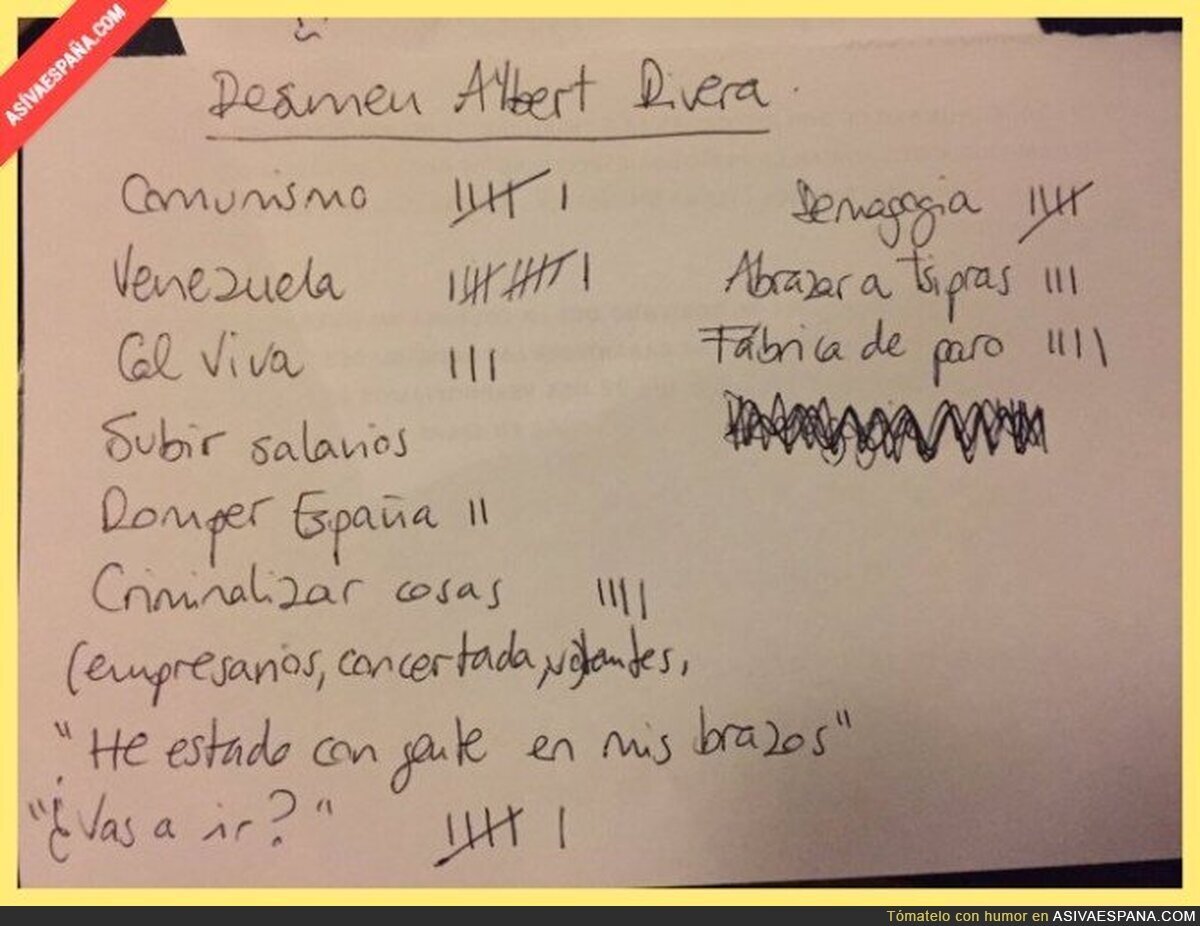 ASÍVAESPAÑA.COM
Resumen Albert Rivera.
Comunismo
Venezuela
Cal Viva
Subir salarios
Romper España
Criminalizar cosas
(empresarios, concertada, votantes,
"He estado con gente en mis brazos"
"¿Vas a ir?"
Demagogia
Abrazar a Tsipras
Fábrica de paro
Tómatelo con humor en ASIVAESPANA.COM